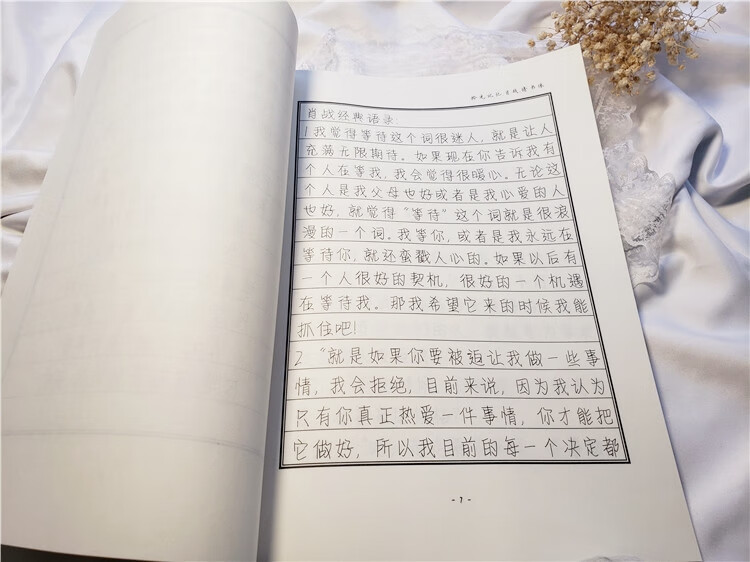 肖战经典语录:
1.我觉得等待这个词很迷人，就是让人
充满无限期待。如果现在你告诉我有
个人在等我，我会觉得很暖心。无论这
个人是我父母也好或者是我心爱的人
也好，就觉得“等待”这个词就是很浪
漫的一个词。我等你，或者是我永远在
等待你，就还蛮戳人心的。如果以后有
一个人很好的契机，很好的一个机遇
在等待我。那我希望它来的时候我能
抓住吧!
2.“就是如果你要被迫让我做一些事
情，我会拒绝，目前来说，因为我认为
只有你真正热爱一件事情，你才能把
它做好，所以我目前的每一个决定都
-1-